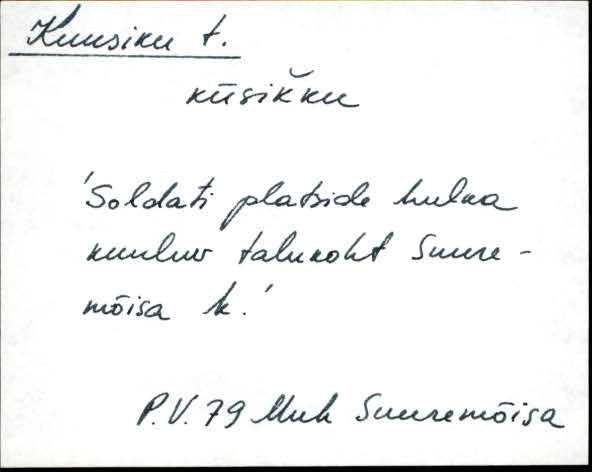 Kuusiku t.
kūsikku
'Soldati platside hulka
kuuluv talukoht Suure-
mõisa k.'
P.V. 79 Muh Suuremõisa